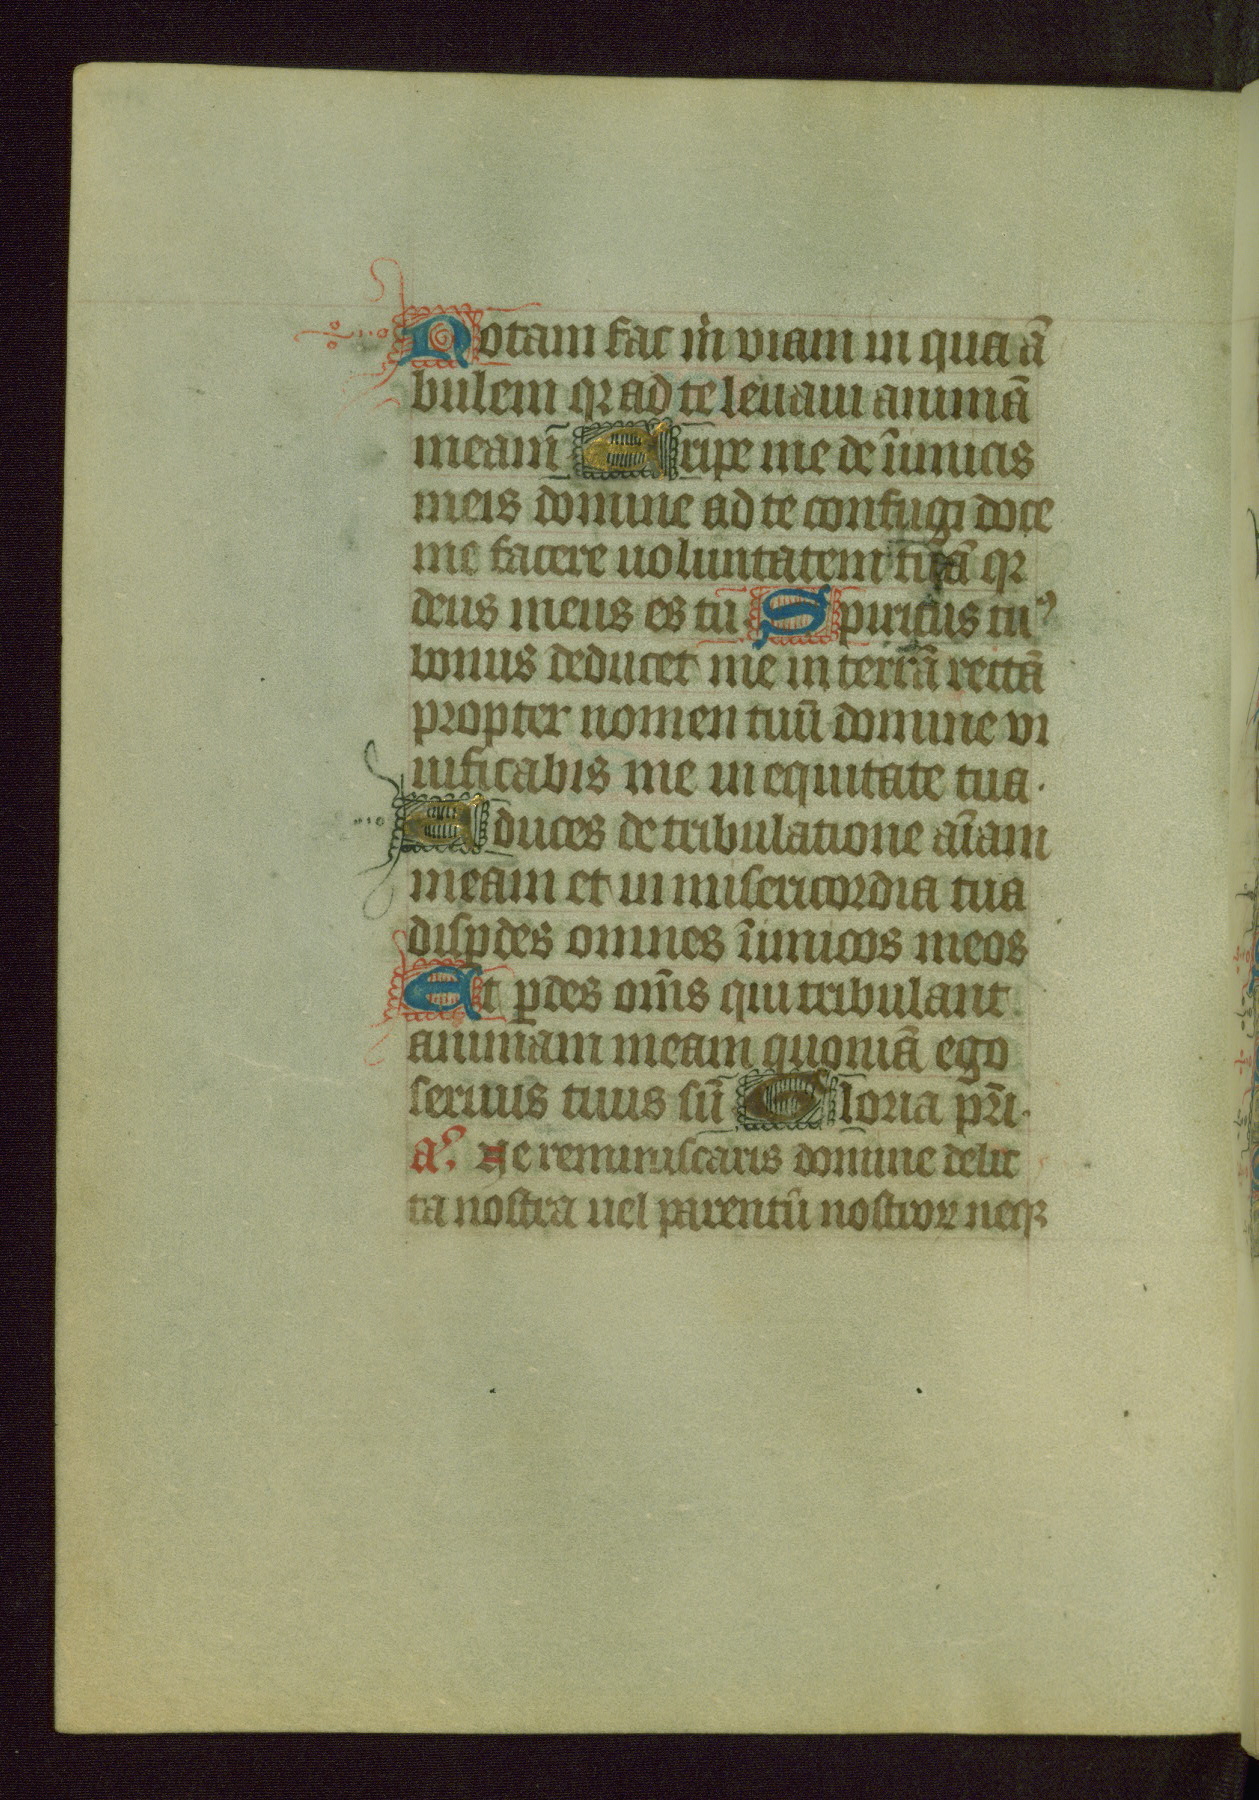 Notam fac m̄ viam in qua ā
bulem qꝛ ad te leuaui animā
meam̄ Eripe me de īimicis
meis domine ad te confugi doce
me facere uoluntatem tuā qꝛ
deus meus es tu Spiritus tuꝰ
bonus deducet me in terrā rectā
propter nomen tuū domine vi
uificabis me in equitate tua.
Educes de tribulatione aīam
meam et in misericordia tua
dispdes omnes īimicos meos
Et ꝑdes om̄s qui tribulant
animam meam quoniā ego
seruus tuus sū Gloria pr̄i.
aꝰ. Ne reminiscaris domine delic
ta nostra uel parentū nostroꝝ neqꝫ